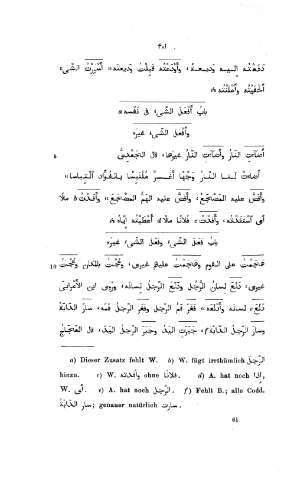 ٣٠١
دفعتُه اليه وديعةً، وأَوْدَعْتُه قبلتُ وديعته a أَسْرَرْتُ الشىء
أخفيتُه وأعلنتُه b
بابُ أَفْعَلَ الشىء فى نفسه
وأَفْعَلَ الشىء غيرَه
أضآءتِ النارُ وأضآءتِ النارُ غيرَها، قال الجَعْدىّ 5
أضاءت لنا النارُ وَجْهًا أَغَرَّ مُلْتَبِسًا بالفُؤاد الْتِباسا
وأَقَضَّ عليه المَضْجَعُ، وأَقَضَّ عليه الهَمُّ المَضْجَعَ c وأَفَدْتُ d مالًا
أى استفدتُه، وأَفَدْتُ e فلانًا مالًا أَعْطَيْتُه إيّاه
بابُ فَعَلَ الشىء وفَعَلَ الشىء غيرَه
هَجَمْتُ على القوم وهَجَمْتُ عليهم غيرى، وعُجْتُ بالمكان وعُجْتُ 10
غيرى، دَلَعَ لسانُ الرَّجُل ودَلَعَ الرجلُ لسانَه، وروى ابن الأعرابىّ
دَلَعَ لسانَه وأَدْلَعَه فَغَرَ فَمُ الرجل وفَغَرَ الرجلُ فَمَه، سارَ الدابَّةُ
وسارَ الرجلُ الدابَّةَ f، جَبَرَتِ اليَدُ وجَبَرَ الرجلُ اليَدَ، قال العَجَّاج
a) Dieser Zusatz fehlt W. b) W. fügt irrthümlich الرَّجُلَ
hinzu. c) W. وأفدته ohne فلانًا. d) A. hat noch إذا,
W. أى. e) A. hat noch الرجل. f) Fehlt B.; alle Codd.
سار الدابّةُ; genauer natürlich سارت.
61